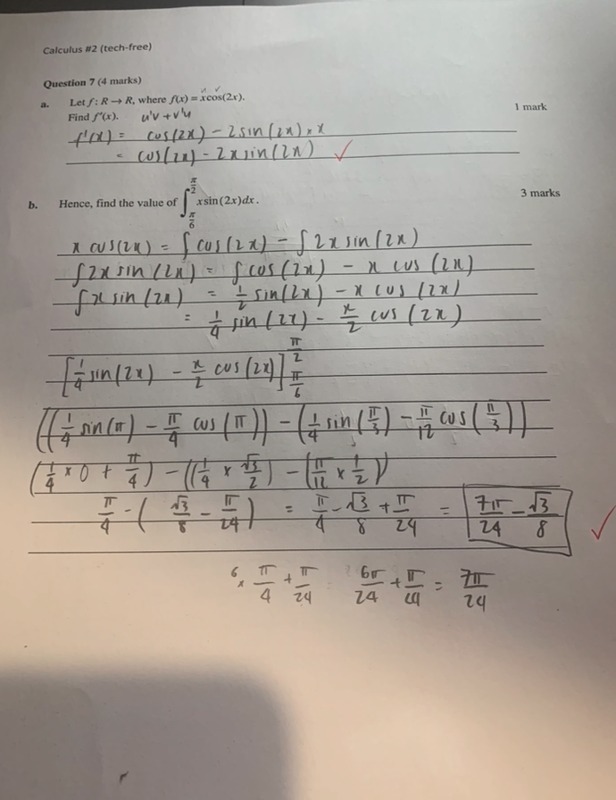 Calculus #2 (tech-free)
Question 7 (4 marks)
a. Let f: R → R, where f(x) = xcos(2x).
1 mark
Find f'(x). u'v + v'u
f'(x) = cos(2x) - 2sin(2x) × x
= cos(2x) - 2x sin(2x) ✓
b. Hence, find the value of ∫_{π/6}^{π/2} xsin(2x)dx.
3 marks
x cos(2x) = ∫cos(2x) - ∫2x sin(2x)
∫2x sin(2x) = ∫cos(2x) - x cos(2x)
∫x sin(2x) = 1/2 sin(2x) - x cos(2x)
= 1/4 sin(2x) - x/2 cos(2x)
[1/4 sin(2x) - x/2 cos(2x)] π/2 π/6
((1/4 sin(π) - π/4 cos(π)) - (1/4 sin(π/3) - π/12 cos(π/3))
(1/4 × 0 + π/4) - ((1/4 × √3/2) - (π/12 × 1/2))
π/4 - (√3/8 - π/24) = π/4 - √3/8 + π/24 = 7π/24 - √3/8 ✓
6 × π/4 + π/24 6π/24 + π/24 = 7π/24